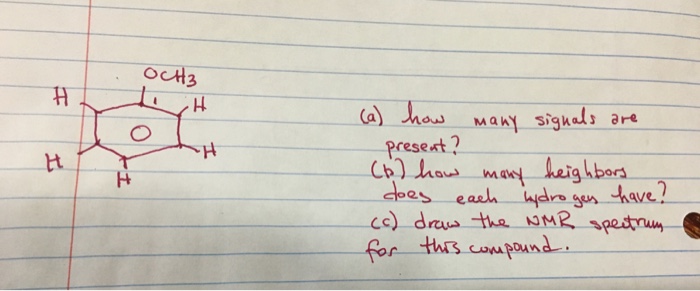 OCH3
H
H
H
H
H
(a) how many signals are
present?
(b) how many neighbors
does each hydrogen have?
(c) draw the NMR spectrum
for this compound.